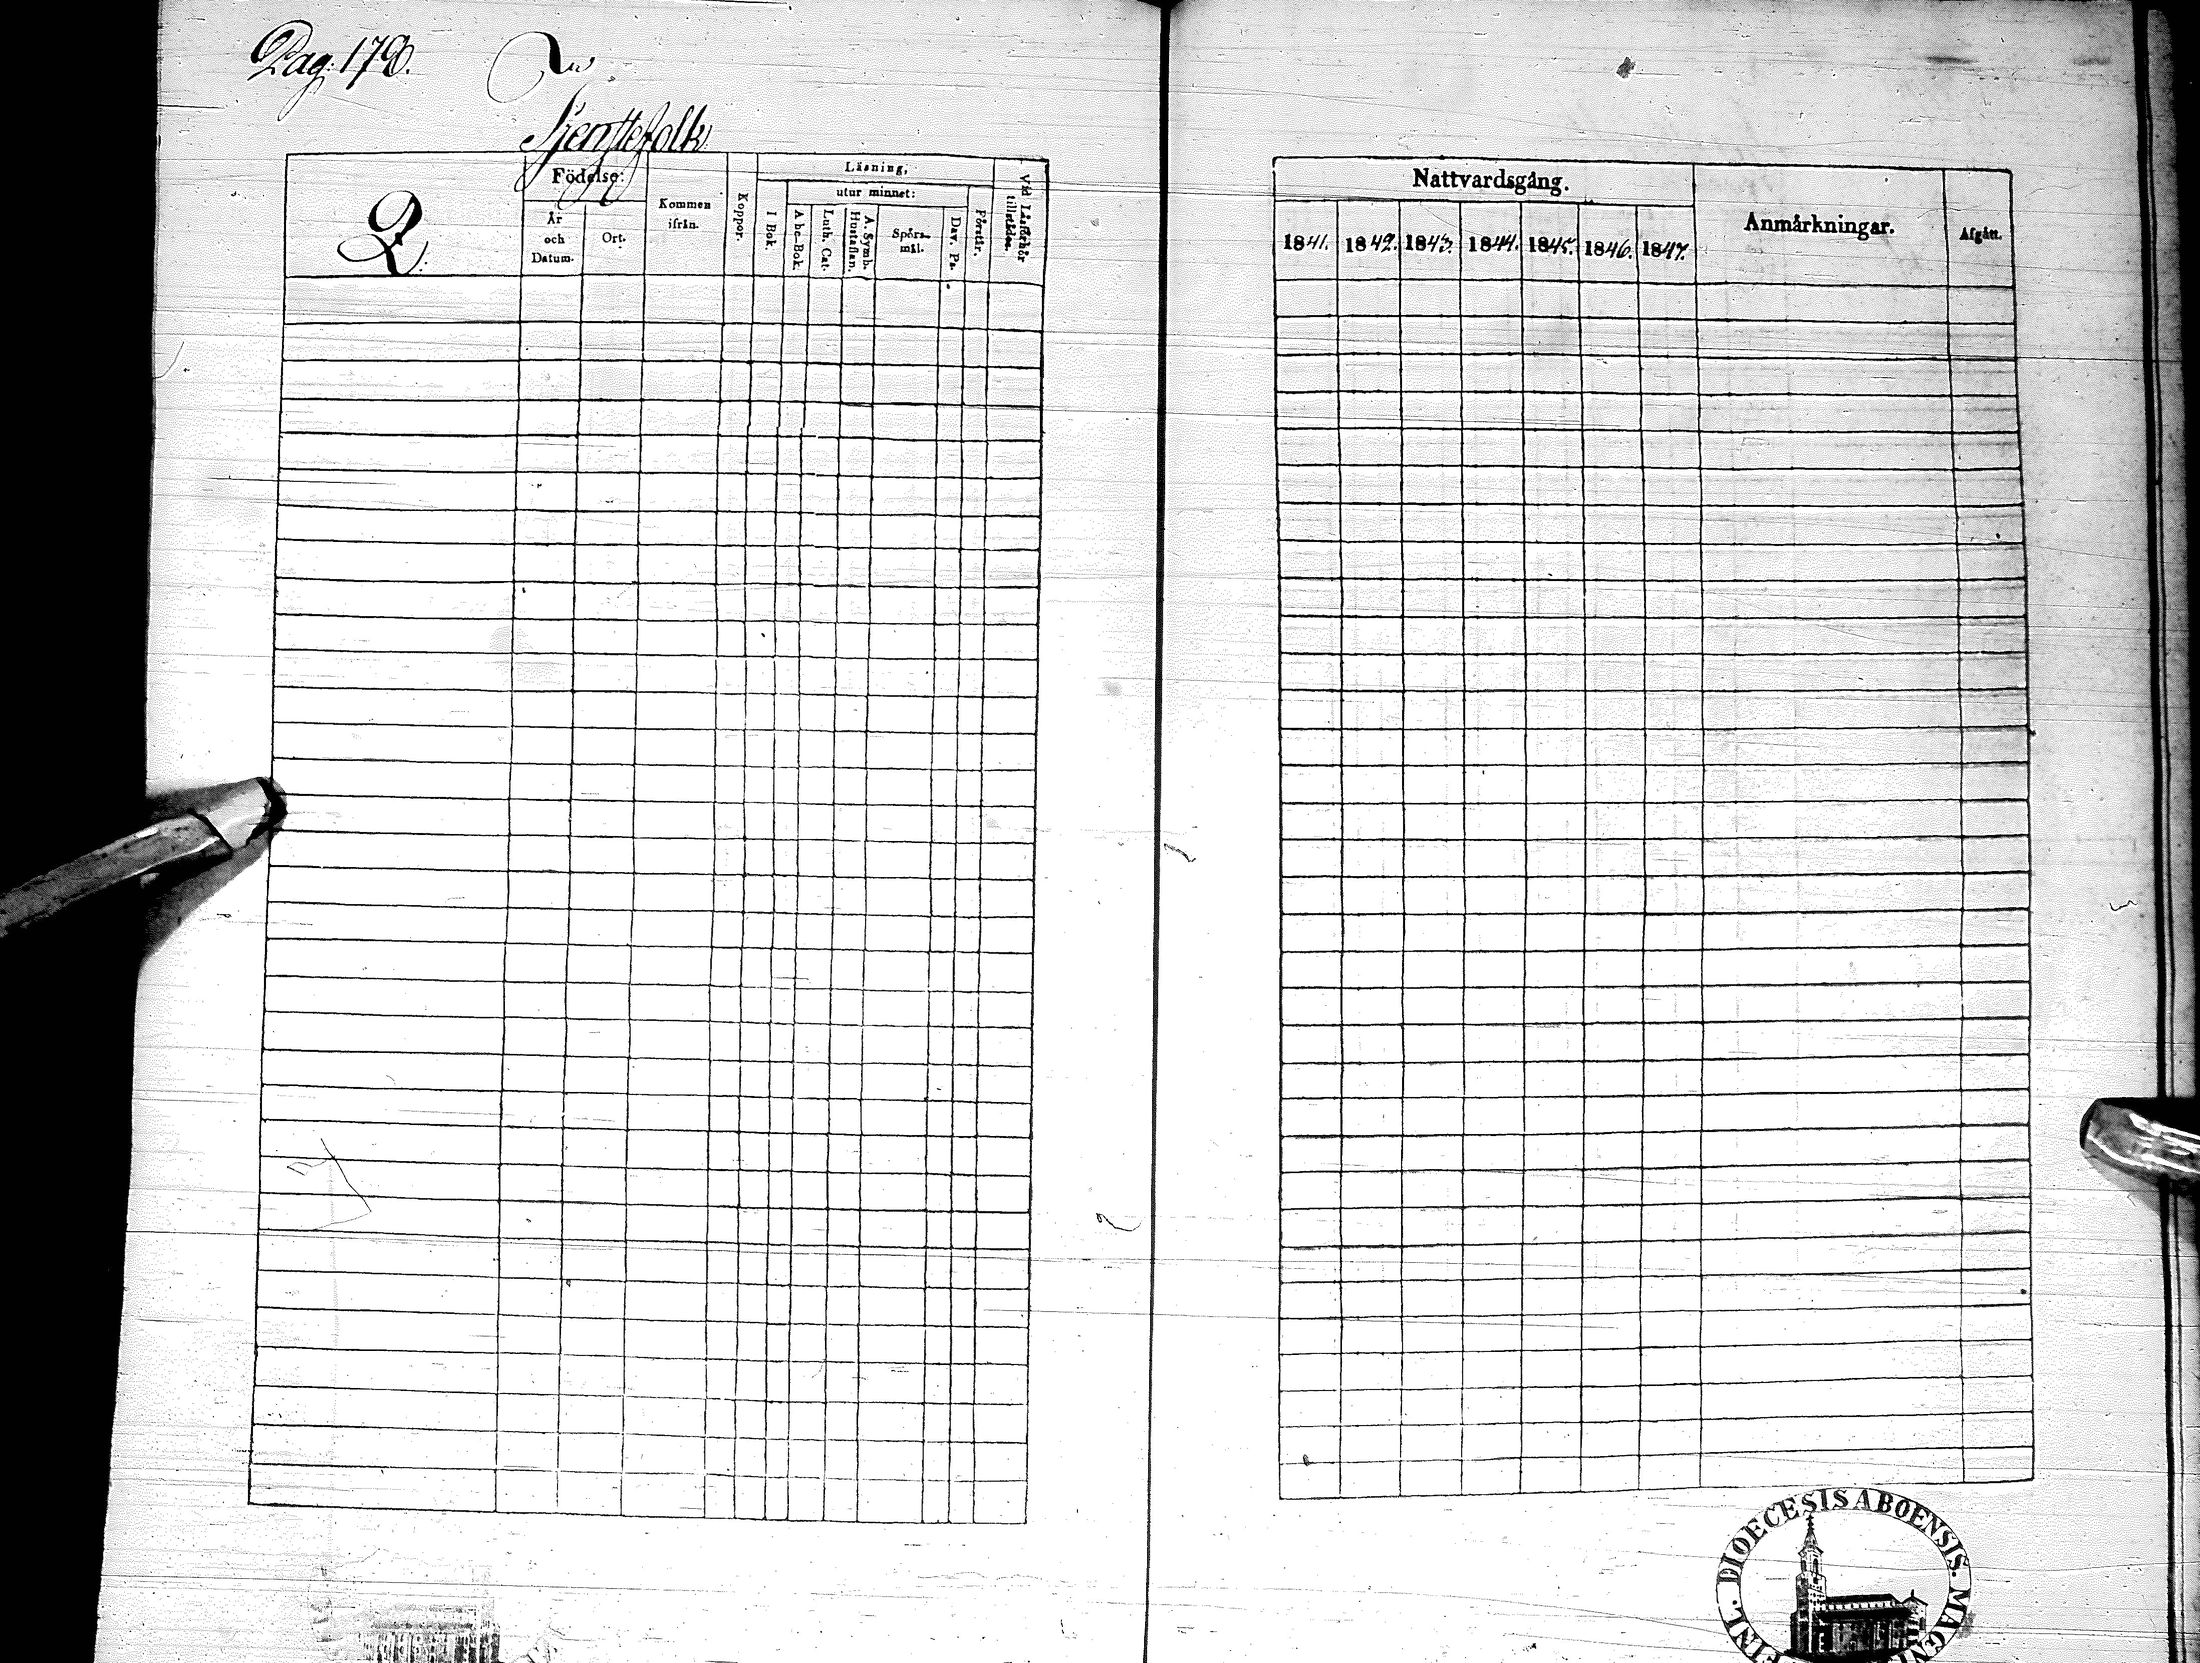 Pag. 178.
Tjenstefolk
Q.
Födelse:
År
och
Datum.
Ort.
Kommen
ifrån.
Koppor.
Läsning,
utur minnet:
I Bok.
Abc-Bok.
Luth. Cat.
A. Symb.
Hustaflan.
Spörs-
mål.
Dav. Ps.
Förstår.
Vid Läseförhör
tillstädes.
Nattvardsgång.
1841.
1842.
1843.
1844.
1845.
1846.
1847.
Anmärkningar.
Afgått.
FINL. DIOECESIS ABOENSIS. MAGN